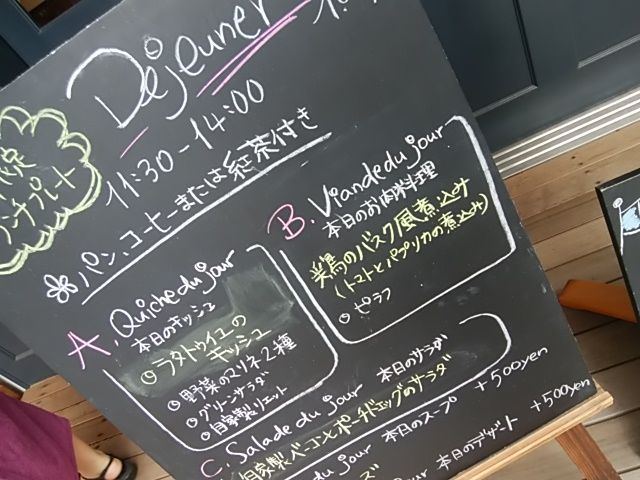 Déjeuner
11:30-14:00
ンチプレート
パン、コーヒーまたは紅茶付き
A. Quiche du jour
本日のキッシュ
ラタトゥイユの
キッシュ
野菜のマリネ2種
グリーンサラダ
自家製リエット
B. Viande du jour
本日のお肉料理
鶏のバスク風煮込み
(トマトとパプリカの煮込み)
ピラフ
C. Salade du jour 本日のサラダ
自家製ベーコンとポーチドエッグのサラダ
du jour 本日のスープ +500yen
ズ
jour 本日のデザート +500yen